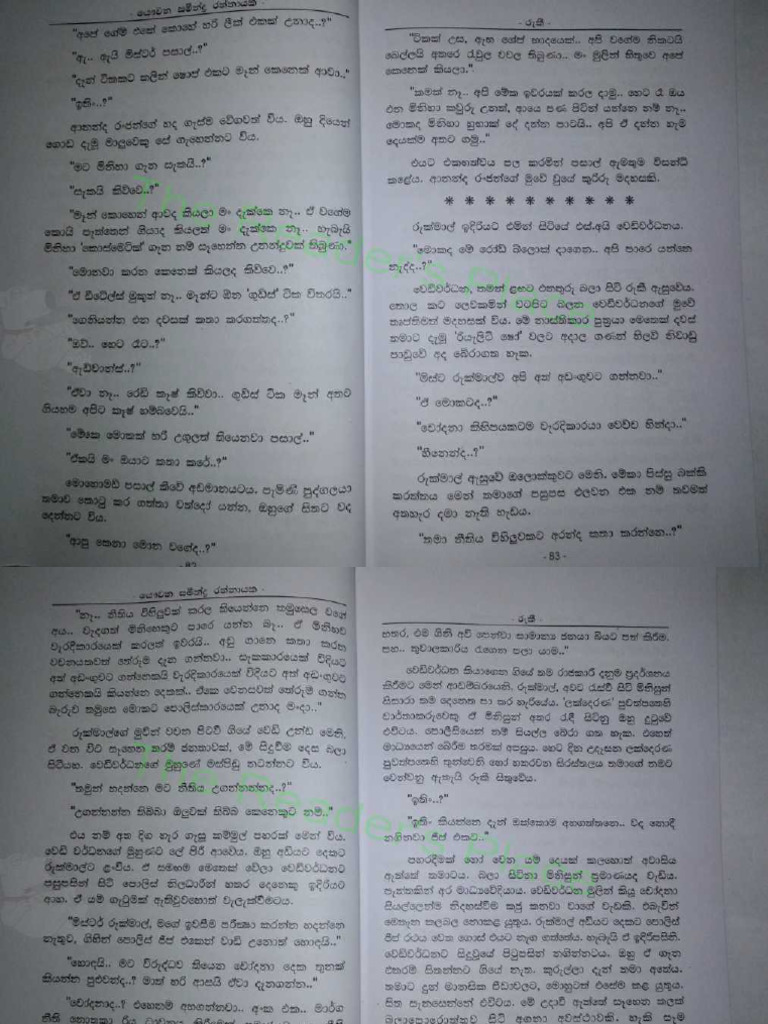 - යෞවන සමින්ද්‍ර රත්නායක -
"අපේ ගේම් එකේ කොහේ හරි ලීක් එකක් උනාද..?"
"ඇ.. ඇයි මිස්ටර් පසාල්..?"
"දැන් ටිකකට කලින් ෂොප් එකට මෑන් කෙනෙක් ආවා.."
"ඉතිං..?"
ආනන්ද රංජන්ගේ හද ගැස්ම වේගවත් විය. ඔහු දියෙන්
ගොඩ දැමූ මාලුවෙකු සේ ගැහෙන්නට විය.
"මට මිනිහා ගැන සැකයි..?"
"සැකයි කිව්වෙ..?"
"මෑන් කොහෙන් ආවද කියලා මං දැක්කෙ නෑ.. ඒ වගේම
කොයි පැත්තෙන් ගියාද කියලත් මං දැක්කෙ නෑ.. හැබැයි
මිනිහා 'කොස්මෙටික්' ගැන නම් සෑහෙන්න උනන්දුවක් තිබුණා."
"මොනවා කරන කෙනෙක් කියලද කිව්වෙ..?"
"ඒ ඩීටේල්ස් මුකුත් නෑ.. මෑන්ට ඕන 'ගුඩ්ස්' ටික විතරයි.."
"ගෙනියන්න එන දවසක් කතා කරගත්තද..?"
"ඔව්.. හෙට රෑට..?"
"ඇඩ්වාන්ස්..?"
"ඒවා නෑ.. රෙඩි කෑෂ් කිව්වා.. ගුඩ්ස් ටික මෑන් අතට
ගියහම අපිට කෑෂ් හම්බවෙයි.."
"මේක මොකක් හරි උගුලක් තියෙනවා පසාල්.."
"ඒකයි මං ඔයාට කතා කරේ..?"
මොහොමඩ් පසාල් කිවේ අඩමානයටය. පැමිණි පුද්ගලයා
තමාව කොටු කර ගත්තා වත්දෝ යන්න, ඔහුගේ සිතට වද
දෙන්නට විය.
"ආපු කෙනා මොන වගේද..?"
- රුකී -
"ටිකක් උස, ඇඟ ශේප් හාදයෙක්.. අපි වගේම නිකටයි
බෙල්ලයි අතරෙ රැවුල වවල තිබුණා.. මං මුලින් හිතුවෙ අපේ
කෙනෙක් කියලා."
"කමක් නෑ.. අපි මේක ඉවරයක් කරල දාමු.. හෙට රෑ ඔය
එන මිනිහා කවුරු උනත්, ආයෙ පණ පිටින් යන්නෙ නම් නෑ..
මොකද මිනිහා හුඟක් දේ දන්න පාටයි.. අපි ඒ දන්න හැම
දෙයක්ම අතට ගමු.."
එයට එකඟත්වය පල කරමින් පසාල් ඇමතුම විසන්ධි
කළේය. ආනන්ද රංජන්ගේ මුවේ වූයේ කුරිරු මදහසකි.
* * * * * * * * * *
රුක්මාල් ඉදිරියට එමින් සිටියේ එස්.අයි වෙඩිවර්ධනය.
"මොකද මේ රෝඩ් බ්ලොස් දාගෙන.. අපි පාරෙ යන්නෙ
නැද්ද..?"
වෙඩිවර්ධන, තමන් ළඟට එනතුරු බලා සිටි රුකී ඇසුවේය.
තොල කට ලෙවකමින් වටපිට බලන වෙඩිවර්ධනගේ මුවේ
තෘප්තිමත් මදහසක් විය. මේ නාස්තිකාර පුත්‍රයා මෙතෙක් දවස්
තමාට දැමූ 'රියැලිටි ෂෝ' වලට අදාල ගණන් හිලව් නිවාඩු
පාඩුවේ අද බේරාගත හැක.
"මිස්ට රුක්මාල්ව අපි අත් අඩංගුවට ගන්නවා.."
"ඒ මොකටද..?"
"චෝදනා කිහිපයකටම වැරදිකාරයා වෙච්ච හින්දා.."
"හීනෙන්ද..?"
රුක්මාල් ඇසුවේ ඔලොක්කුවට මෙනි. මේකා පිස්සු බල්ලි
කරත්තය මෙන් තමාගේ පසුපස එලවන එක නම් තවමත්
අතහැර දමා නැති හැඩය.
"තමා නීතිය විහිලුවකට අරන්ද කතා කරන්නෙ..?"
- 83 -
- යෞවන සමින්ද්‍ර රත්නායක -
"නෑ.. නීතිය විහිලුවක් කරල තියෙන්නෙ තමුසෙල වගේ
අය.. වැදගත් මිනිහෙකුට පාරෙ යන්න බෑ.. ඒ මිනිහව
වැරදිකාරයෙක් කරලත් ඉවරයි.. අඩු ගානෙ කතා කරන
වචනයකවත් තේරුම දැන ගන්නවා.. සැකකාරයෙක් විදියට
අත් අඩංගුවට ගන්නෙකයි වැරදිකාරයෙක් විදියට අත් අඩංගුවට
ගන්නෙකයි කියන්නෙ දෙකක්.. ඒකෙ වෙනසවත් තේරුම් ගන්න
බැරුව තමුසෙ මොකට පොලිස්කාරයෙක් උනාද මංදා.."
රුක්මාල්ගේ මුවින් වචන පිටවී ගියේ වෙඩි උන්ඩ මෙනි.
ඒ වන විට සෑහෙන තරම් ජනතාවක්, මේ සිදුවීම දෙස බලා
සිටියහ. වෙඩිවර්ධනගේ මුහුණේ මස්පිඩු නටන්නට විය.
"තමුන් හදන්නෙ මට නීතිය උගන්නන්නද..?"
"උගන්නන්න තිබ්බා ඔලුවක් තිබ්බ කෙනෙකුට නම්.."
එය නම් අත දිග හැර ගැසූ කම්මුල් පහරක් මෙන් විය.
වෙඩි වර්ධනගේ මුහුණට ලේ පිරී ආවේය. ඔහු අඩියට දෙකට
රුක්මාල්ට ළංවිය. ඒ සමඟම මෙතෙක් වේලා වෙඩිවර්ධනට
පසුපසින් සිටි පොලිස් නිලධාරීන් හතර දෙනෙකු ඉදිරියට
ආහ. ඒ යම් ගැටුමක් ඇතිවුවහොත් වැලැක්වීමටය.
"මිස්ටර් රුක්මාල්, මගේ ඉවසීම පරීක්ෂා කරන්න හදන්නෙ
නැතුව, ගිහින් පොලිස් ජීප් එකෙන් වාඩි උනොත් හොඳයි.."
"හොඳයි.. මට විරුද්ධව තියෙන චෝදනා දෙක තුනක්
කියන්න පුළුවන්ද..? මාත් හරි ආසයි ඒවා දැනගන්න.."
"චෝදනාද..? එහෙනම් අහගන්නවා.. අංක එක.. මාර්ග
- රුකී -
හතර, එම ගිනි අවි පෙන්වා සාමාන්‍ය ජනයා බියට පත් කිරීම.
පහ.. තුවාලකාරිය රැගෙන පලා යාම.."
වෙඩිවර්ධන කියාගෙන ගියේ තම රාජකාරී දැනුම ප්‍රදර්ශනය
කිරීමට මෙන් ආඩම්බරයෙනි. රුක්මාල්, අවට රැස්වී සිටි මිනිසුන්
සිසාරා තම දෙනෙත පා කර හැරියේය. 'ලක්දෙරණ' පුවත්පතෙහි
වාර්තාකරුවෙකු ඒ මිනිසුන් අතර රැඳී සිටිනු ඔහු දුටුවේ
එවිටය. පොලීසියෙන් නම් සියල්ල බේරා ගත හැක. එහෙත්
මාධ්‍යයෙන් බේරීම තරමක් අපසුය. හෙට දින උදෑසන ලක්දෙරණ
පුවත්පතෙහි තුන්වෙනි හෝ හතරවන සිරස්තලය තමාගේ නමට
වෙන්වනු ඇතැයි රුකී සිතුවේය.
"ඉතිං..?"
"ඉතිං කියන්නෙ දැන් ඔක්කොම අහගත්තනෙ.. වද නොදී
නගිනවා ජීප් එකට.."
පහරදීමක් හෝ වෙන යම් දෙයක් කලහොත් අවාසිය
ඇත්තේ තමාටය. බලා සිටිනා මිනිසුන් ප්‍රමාණයද වැඩිය.
පැත්තකින් අර මාධ්‍යවේදියාය. වෙඩිවර්ධන මුලින් කියූ චෝදනා
සියල්ලෙන්ම නිදහස්වීම කජු කනවා වාගේ වැඩකි. එබැවින්
මෙතැන කලබල නොකළ යුතුය. රුක්මාල් අඩියට දෙකට පොලිස්
ජීප් රථය වෙත ගොස් එයට නැග ගත්තේය. හැබැයි ඒ ඉදිරිපසිනි.
වෙඩිවර්ධනට සිදුවූයේ පිටුපසින් නගින්නටය. ඔහු ඒ ගැන
එතරම් සිතන්නට ගියේ නැත. කුරුල්ලා දැන් තමා අතේය.
තමාට දුන් මානසික පීඩාවලට, මොහුටත් එසේම කළ යුතුය.
සිත සැනසෙන්නේ එවිටය. මේ උදාවී ඇත්තේ සෑහෙන කලක්
බලාපොරොත්තුව සිටි අගනා අවස්ථාවකි. හැකි සෑම